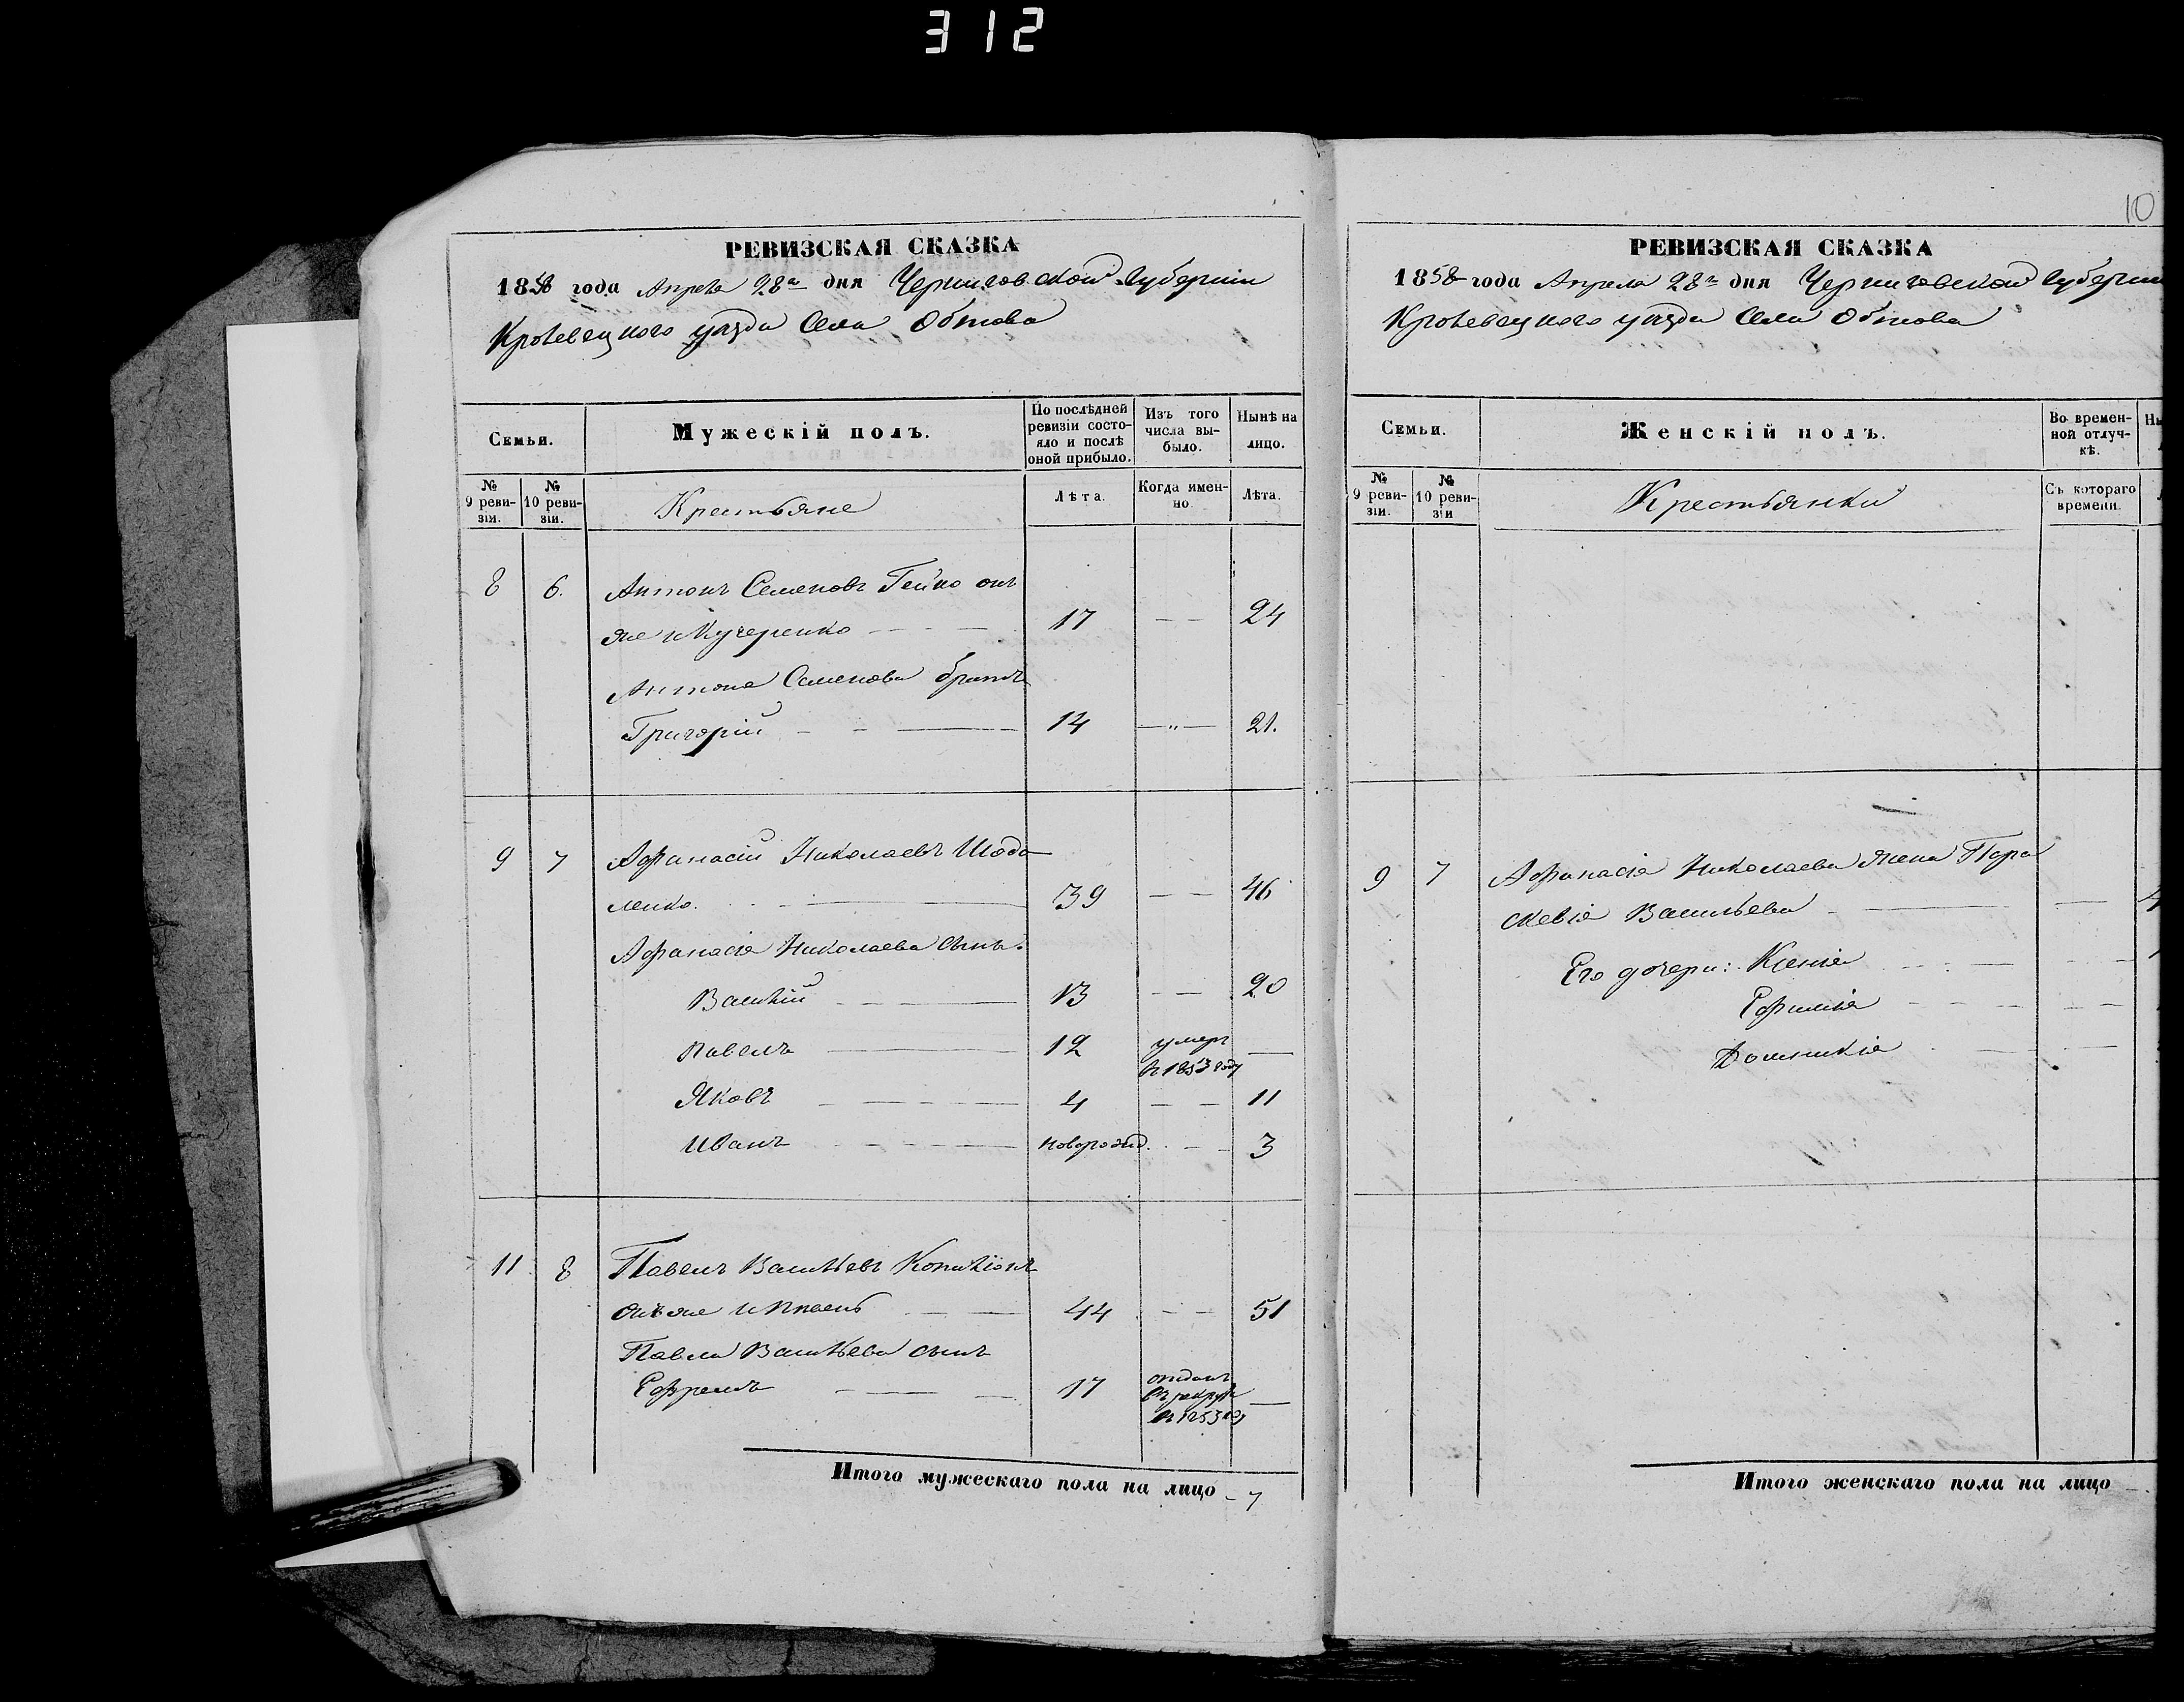 312
РЕВИЗСКАЯ СКАЗКА
1858 года Апреля 28го дня Черниговской Губернии
Кролевецкого уезда Села Обтова
Семьи.
Мужескій полъ.
По послѣдней ревизіи состояло и послѣ оной прибыло.
Изъ того числа выбыло.
Нынѣ на лицо.
№ 9 ревизіи.
№ 10 ревизіи.
Крестьяне
Лѣта.
Когда именно.
Лѣта.
8 6. Антонъ Семеновъ Гейко онъ
же и Кучеренко 17 — — 24
Антона Семенова братъ
Григорій 14 —"— 21.
9 7 Афанасій Николаевъ Шадо
ленко. 39 — — 46
Афанасія Николаева сынъ:
Василій 13 — — 20
Павелъ 12 умеръ в 1853 году —
Яковъ 4 — — 11
Иванъ новорожд. — — 3
11 8 Павелъ Васильевъ
онъ же и 44 — — 51
Павла Васильева сынъ
Ефремъ 17 отданъ въ рекруты в 1853 году —
Итого мужескаго пола на лицо - 7
10
РЕВИЗСКАЯ СКАЗКА
1858 года Апреля 28го дня Черниговской Губернии
Кролевецкого уезда Села Обтова
Семьи.
Женскій полъ.
Во временной отлучкѣ.
Ны
№ 9 ревизіи.
№ 10 ревизіи
Крестьянки
Съ котораго времени.
9 7 Афанасія Николаева жена Пара
скевія Васильева — 4
Его дочери: Ксенія — —
Ефимія — —
Домникія — —
Итого женскаго пола на лицо